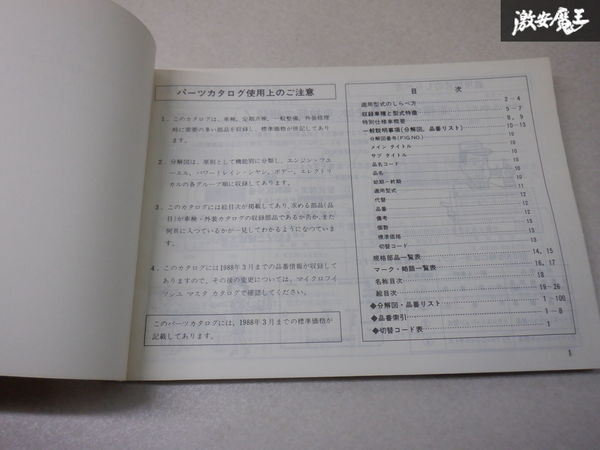 激安魔王
パーツカタログ使用上のご注意
1．このカタログは、車検、定期点検、一般整備、外装修理
時に需要の多い部品を収録し、標準価格が併記してあり
ます。
2．分解図は、原則として機能別に分類し、エンジン・フュ
ーエル、パワートレイン・シヤシ、ボデー、エレクトリ
カルの各グループ順に収録してあります。
3．このカタログには絵目次が掲載してあり、求める部品(品
目)が車検・外装カタログの収録部品であるか否か、また
何頁に入っているかが一見してわかるようになっていま
す。
4．このカタログには1988年3月までの品番情報が収録して
ありますので、その後の変更については、マイクロフイ
ツシユ マスタ カタログで確認してください。
このパーツカタログには、1988年3月までの標準価格が
記載してあります。
目 次
適用型式のしらべ方 2－4
収録車種と型式特徴 5－7
特別仕様車概要 8，9
一般説明事項(分解図、品番リスト) 10－13
分解図番号(FIG.NO.) 10
メイン タイトル 10
サブ タイトル 10
品名コード 10
品名 10
始期－終期 11
適用型式 11
代替 12
品番 12
備考 12
個数 13
標準価格 13
切替コード 13
規格部品一覧表 14，15
マーク・略語一覧表 16，17
名称目次 18
絵目次 19－26
◆分解図・品番リスト 1－100
◆品番索引 1－8
◆切替コード表 1
1